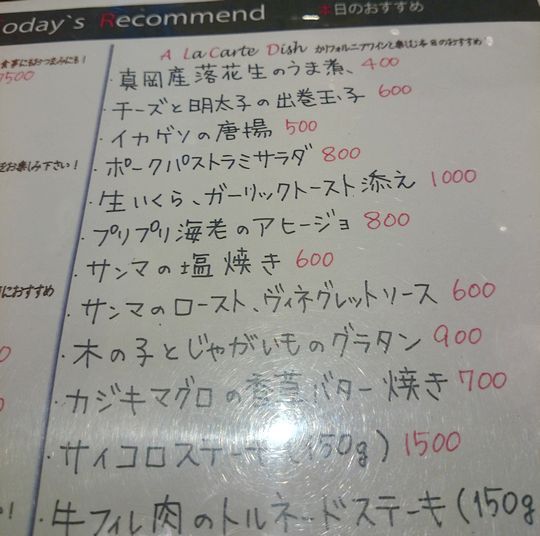 Today`s Recommend 本日のおすすめ
食事にもおつまみにも!
1500
お楽しみ下さい!
におすすめ
A La Carte Dish カリフォルニアワインと楽しむ本日のおすすめ
・真岡産落花生のうま煮、400
・チーズと明太子の出巻玉子 600
・イカゲソの唐揚 500
・ポークパストラミサラダ 800
・生いくら、ガーリックトースト添え 1000
・プリプリ海老のアヒージョ 800
・サンマの塩焼き 600
・サンマのロースト、ヴィネグレットソース 600
・木の子とじゃがいものグラタン 900
・カジキマグロの香草バター焼き 700
・サイコロステーキ(150g) 1500
・牛フィレ肉のトルネードステーキ(150g